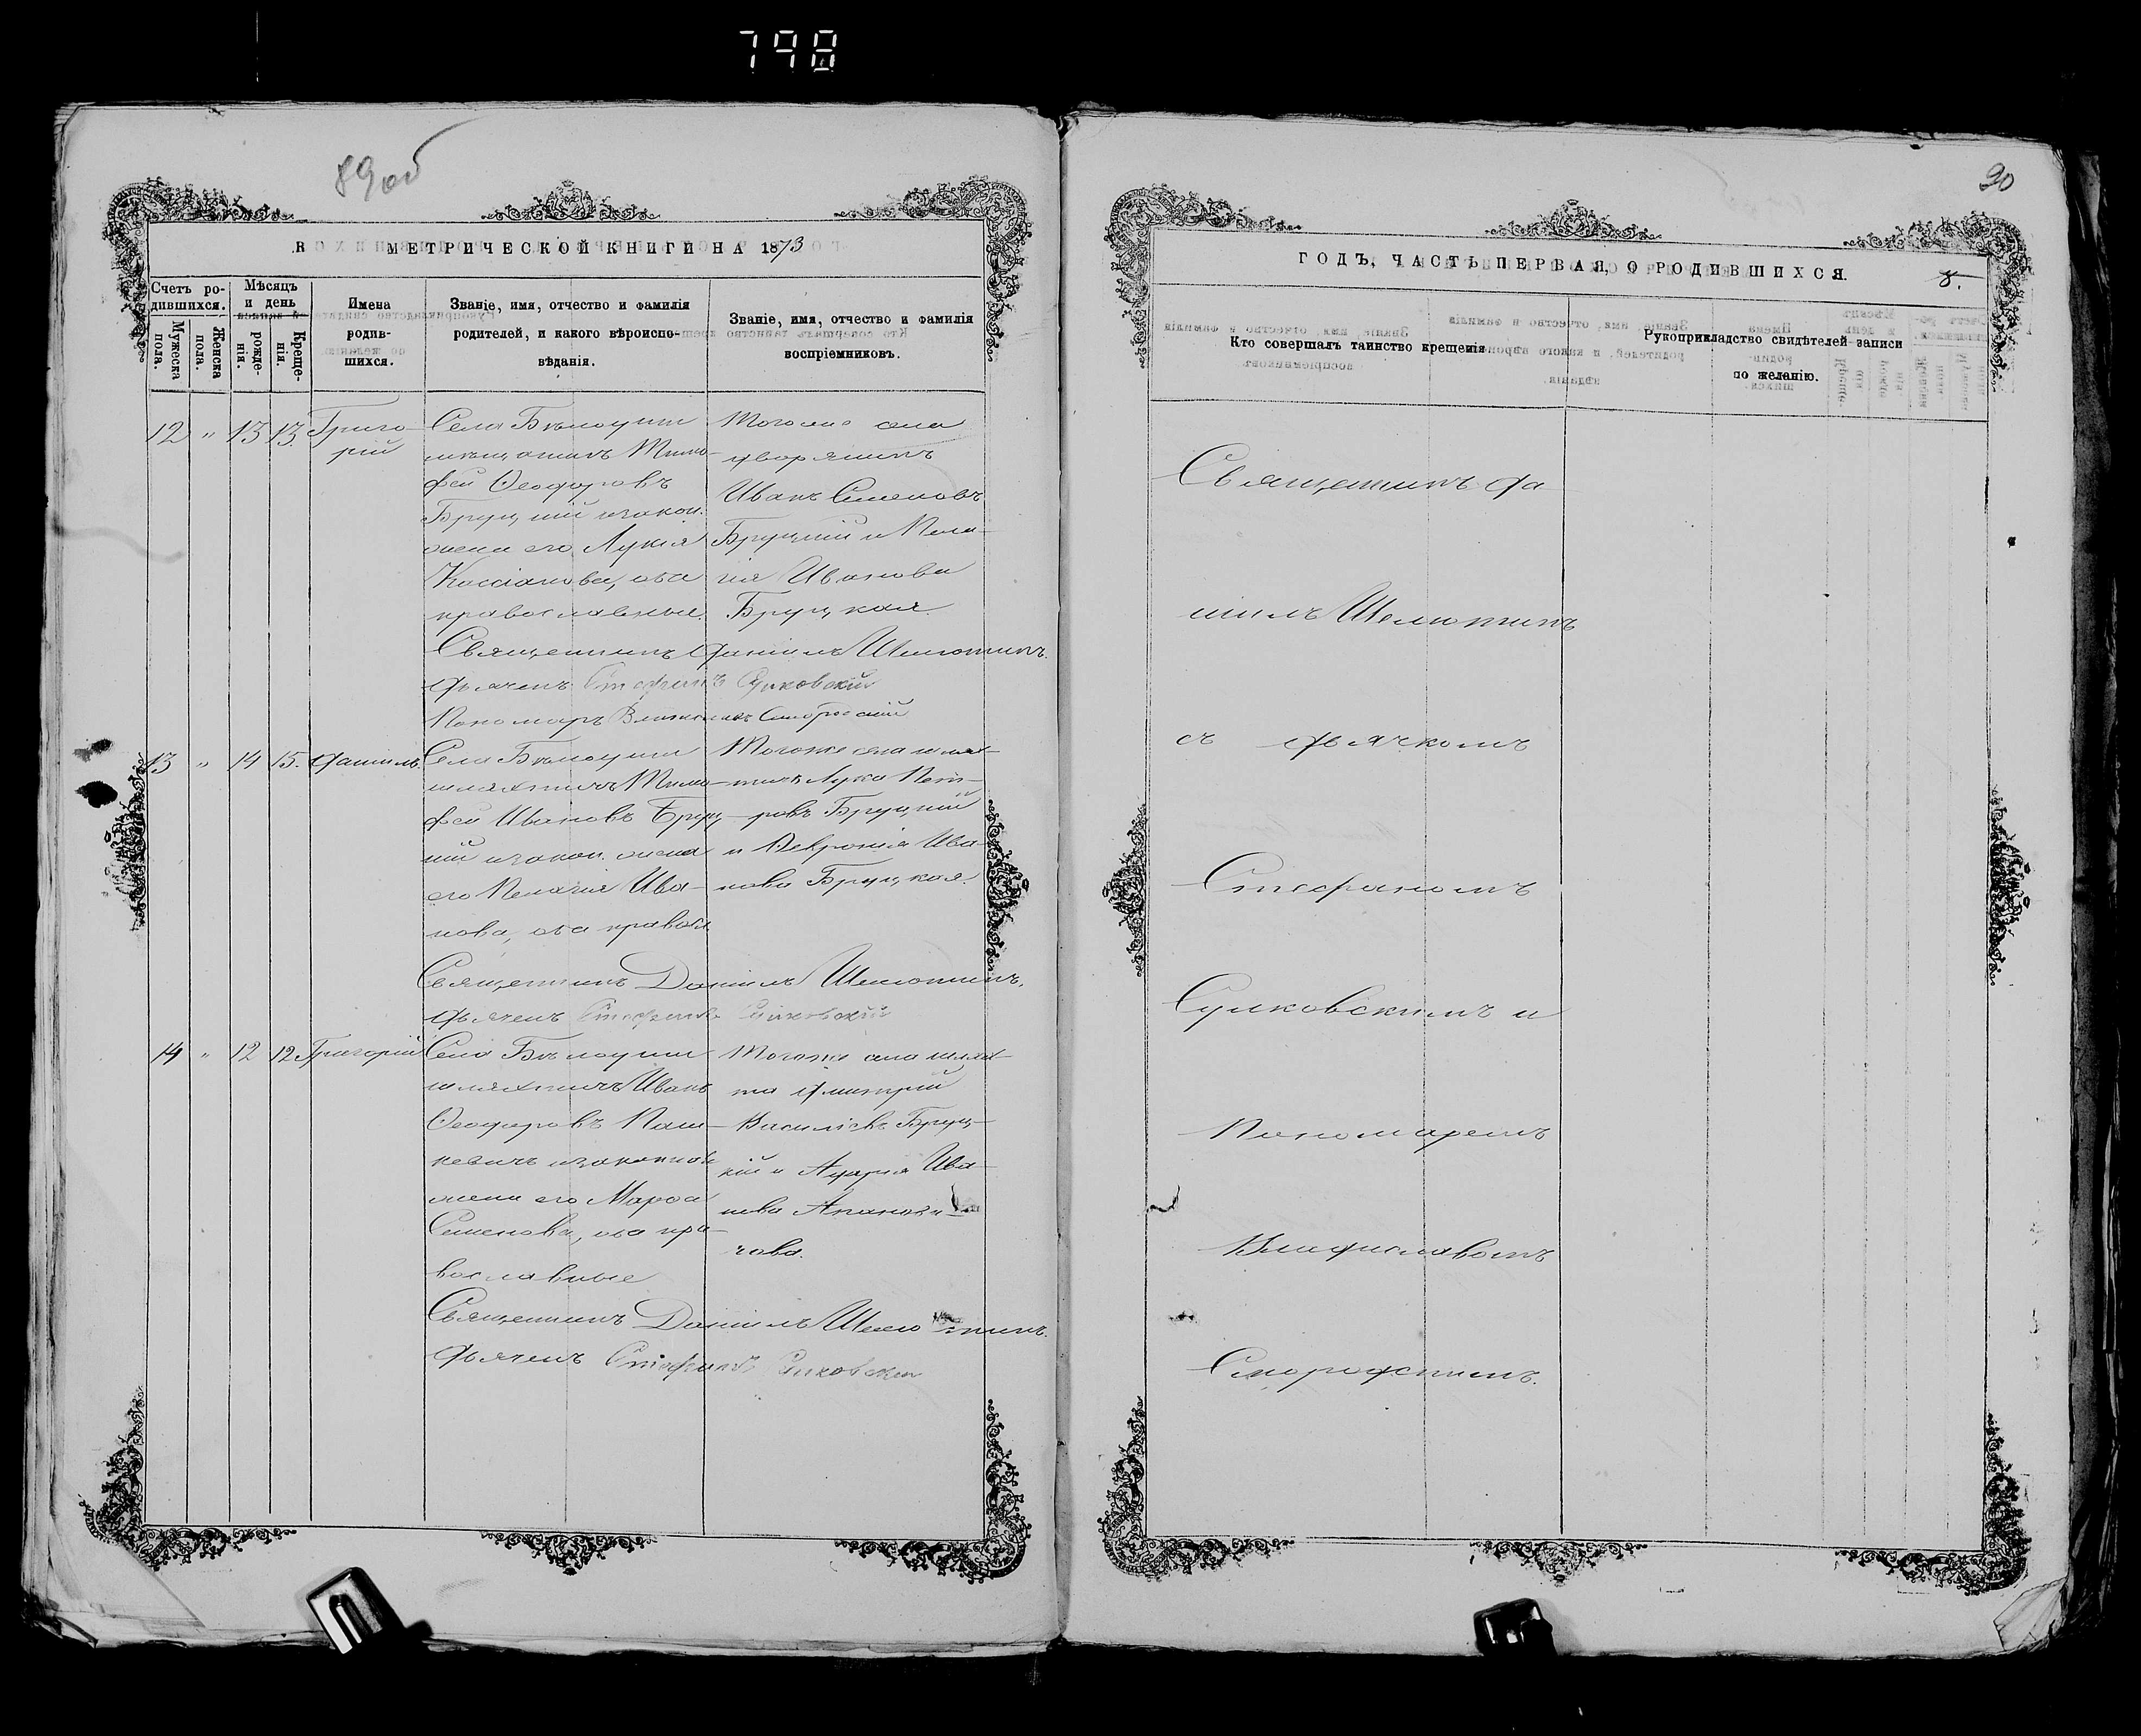 798
89об
МЕТРИЧЕСКОЙ КНИГИ НА 1873
Счетъ ро-
дившихся.
Мужеска пола.
Женска пола.
Мѣсяцъ
и день
рожде-
нія.
Креще-
нія.
Имена
родив-
шихся.
Званіе, имя, отчество и фамилія
родителей, и какого вѣроиспо-
вѣданія.
Званіе, имя, отчество и фамилія
воспріемниковъ.
12 " 13 13. Григо-
рій
Села Бѣлоуши
мѣщанинъ Тимо-
фей Ѳеодоровъ
Бруцкій и закон.
жена его Лукія
Кассіанова, оба
православные.
Тогоже села
дворянинъ
Иванъ Семеновъ
Бруцкій и Пела-
гія Иванова
Бруцкая.
Священникъ Даніилъ Шеметилъ
дьячекъ Стефанъ Сулковскій
Пономарь
13 " 14 15. Даніилъ.
Села Бѣлоуши
шляхтичъ Тимо-
фей Ивановъ Бруц-
кій и закон. жена
его Пелагія Ива-
нова, оба правосл.
Тогоже села шлях-
тичъ Лука Пет-
ровъ Бруцкій
и Ива-
нова Бруцкая.
Священникъ Даніилъ
дьячекъ Стефанъ Сулковскій
14 " 12 12 Григорій
Села Бѣлоуши
шляхтичъ Иванъ
Ѳеодоровъ Паш-
кевичъ и законная
жена его Марѳа
Семенова, оба пра-
вославные
Тогоже села шлях-
та Димитрій
Василіевъ Бруц-
кій и Ива-
нова
Священникъ Даніилъ
дьячекъ Стефанъ Сулковскій
90
ГОДЪ, ЧАСТЬ ПЕРВАЯ, О РОДИВШИХСЯ.
8.
Кто совершалъ таинство крещенія
Рукоприкладство свидѣтелей записи
по желанію.
Священникъ Да
ніилъ
съ дьячкомъ
Стефаномъ
Сулковскимъ и
Пономаремъ
Владиславомъ
Смородскимъ.